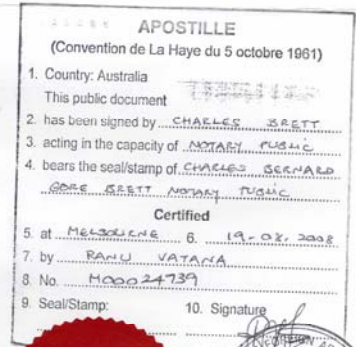 APOSTILLE
(Convention de La Haye du 5 octobre 1961)
1. Country: Australia
This public document
2. has been signed by CHARLES BRETT
3. acting in the capacity of NOTARY PUBLIC
4. bears the seal/stamp of CHARLES BERNARD
GORE BRETT NOTARY PUBLIC
Certified
5. at MELBOURNE 6. 19.08.2008
7. by RANU VATANA
8. No. M00024739
9. Seal/Stamp: 10. Signature